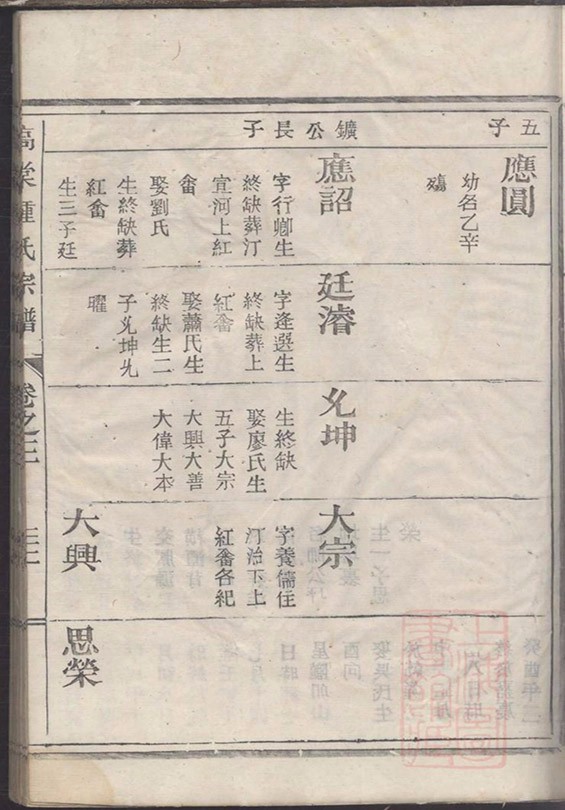 五子
鑛公長子
應圓
幼名乙辛
殤
應詔
字行卿生
終缺葬汀
宣河上紅
畬
娶劉氏
生終缺葬
紅畬
生三子廷
廷濬
字逢選生
終缺葬上
紅畬
娶蕭氏生
終缺生二
子允坤允
曜
允坤
生終缺
娶廖氏生
五子大宗
大興大善
大偉大本
大宗
字養儒住
汀治下上
紅畬各紀
大興
思榮
鍾氏宗譜
卷之三